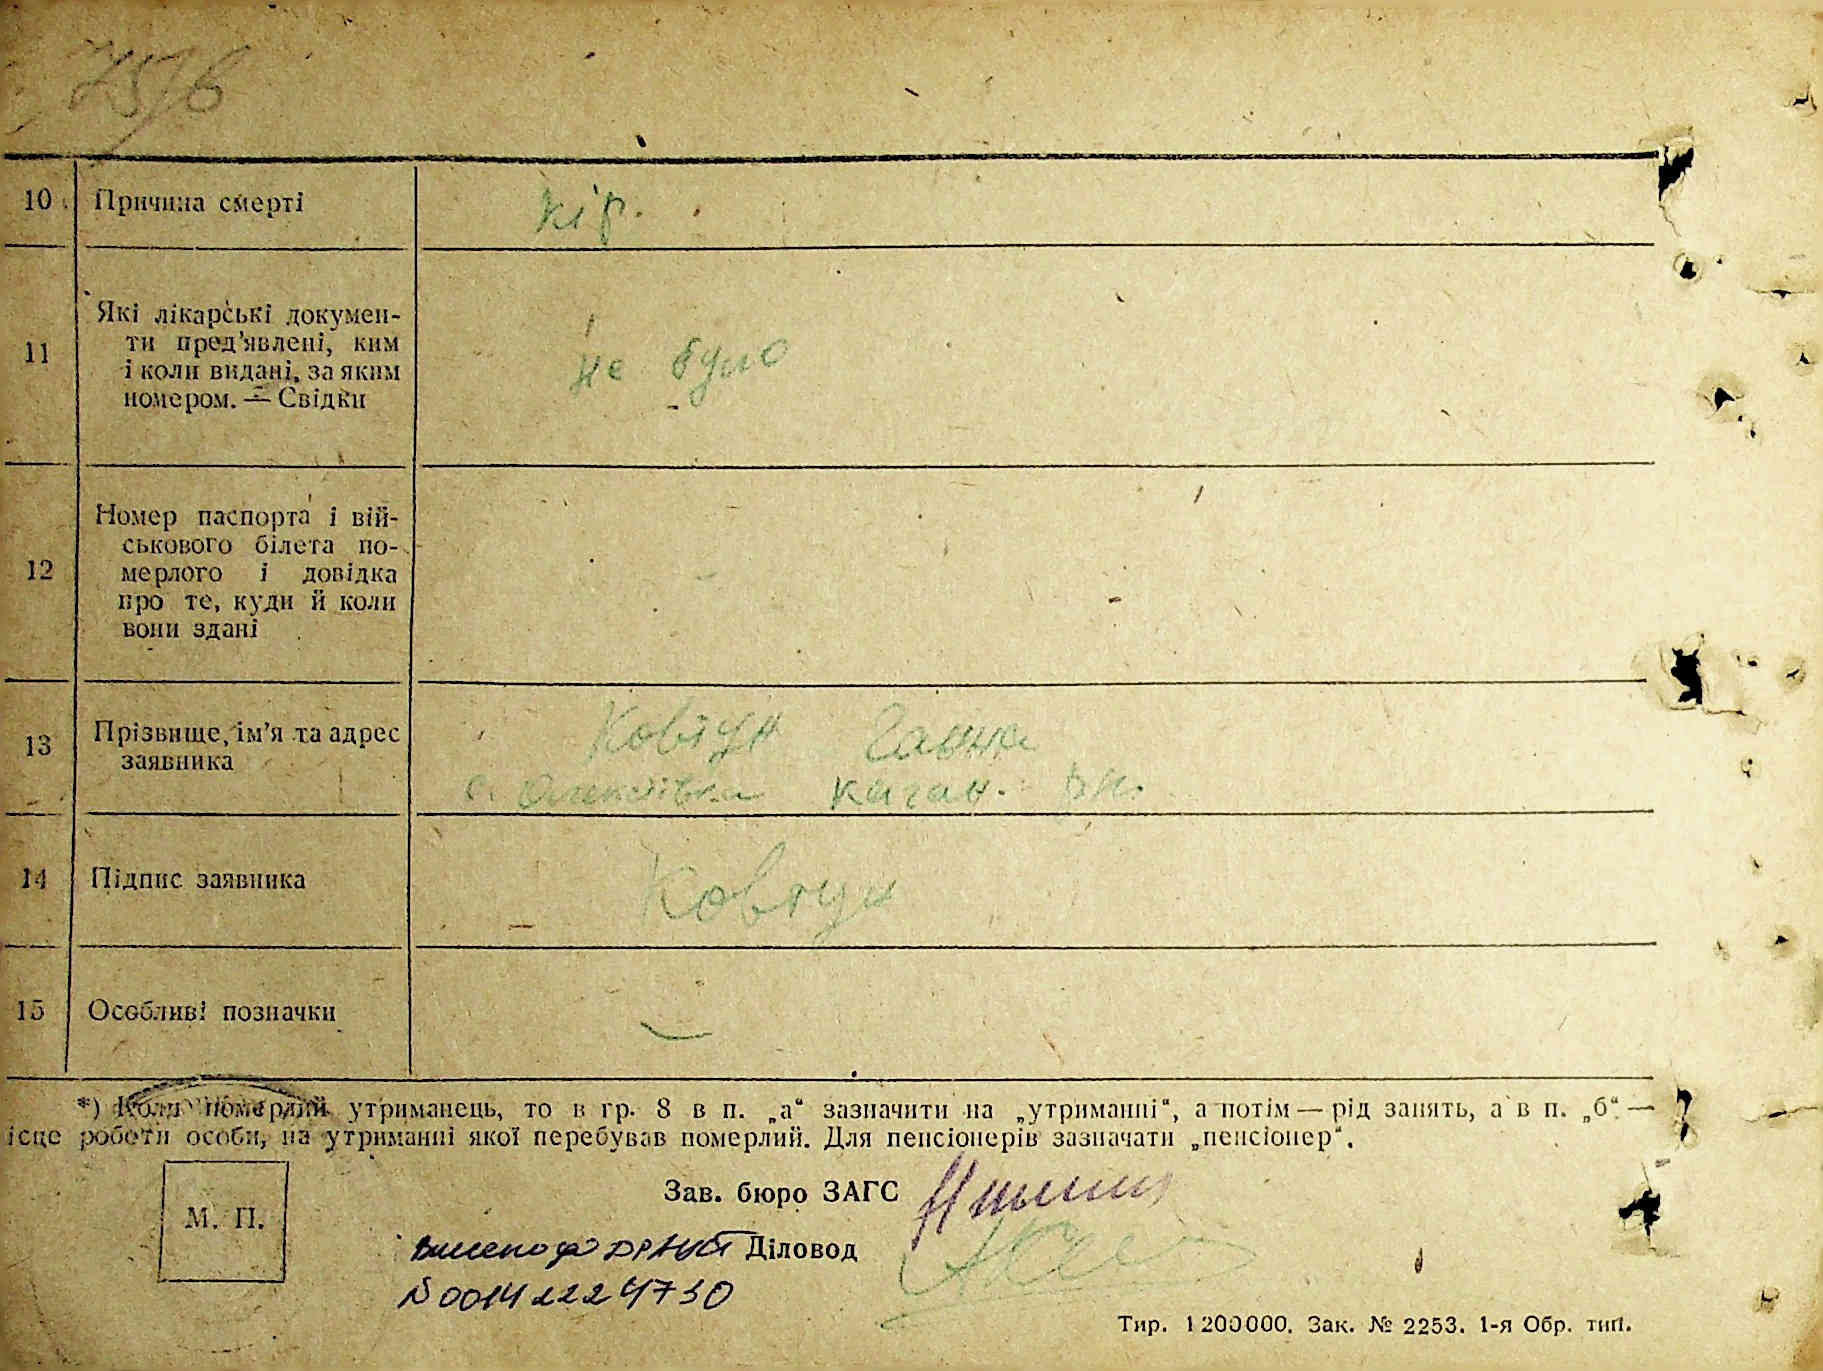 10 Причина смерті кір.
11 Які лікарські докумен-
ти пред’явлені, ким
і коли видані, за яким
номером. — Свідки
не було
12 Номер паспорта і вій-
ськового білета по-
мерлого і довідка
про те, куди й коли
вони здані
13 Прізвище, ім’я та адрес
заявника
Ковтун Ганна
с. Олексіївка Каган. рн.
14 Підпис заявника Ковтун
15 Особливі позначки —
*) Коли померлий утриманець, то в гр. 8 в п. „а“ зазначити на „утриманні“, а потім — рід занять, а в п. „б“ —
ісце роботи особи, на утриманні якої перебував померлий. Для пенсіонерів зазначати „пенсіонер“.
М. П.
Зав. бюро ЗАГС
Діловод
№ 00142224730
Тир. 1 200 000. Зак. № 2253. 1-я Обр. тип.